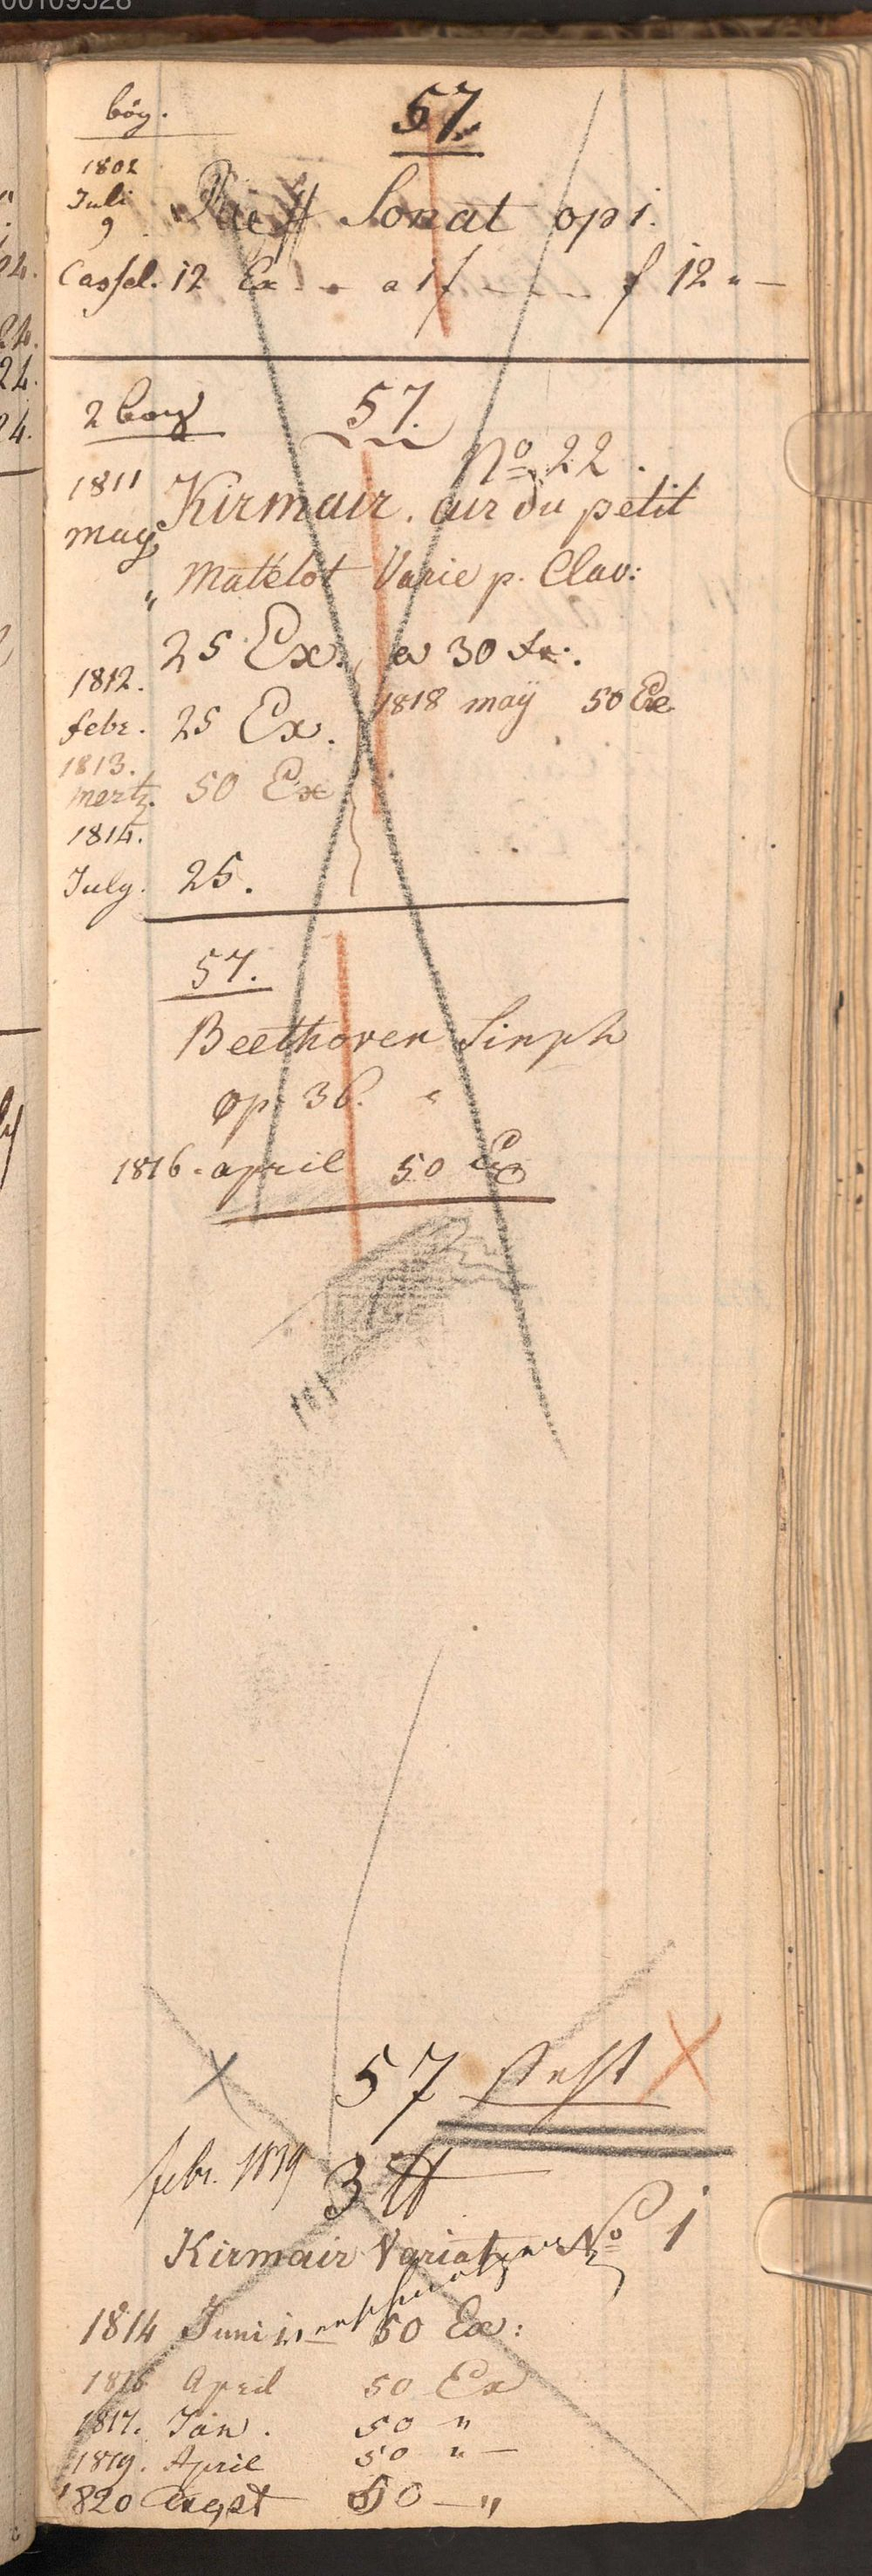 00109528
bög.
57.
1802
Juli
9
Sonat op 1.
Cassel. 12 Ex. - a 1 f - - - f 12 „ —
2 bog
57.
No 22.
1811
may
Kirmair. air du petit
„ Matelot Varie p. Clav:
25 Ex. a 30 xr.
1812.
febr. 25 Ex.
1818 maÿ 50 Ex
1813.
mertz. 50 Ex
1814.
July. 25.
57.
Beethoven Sinph
op. 36.
1816. april 50 Ex
57
febr. 1839
3 ff
Kirmair Variat No 1
1814 Juni 50 Ex:
1815 April 50 Ex
1817. Jan. 50 „
1819. April 50 „ —
1820 Augst 50 — „